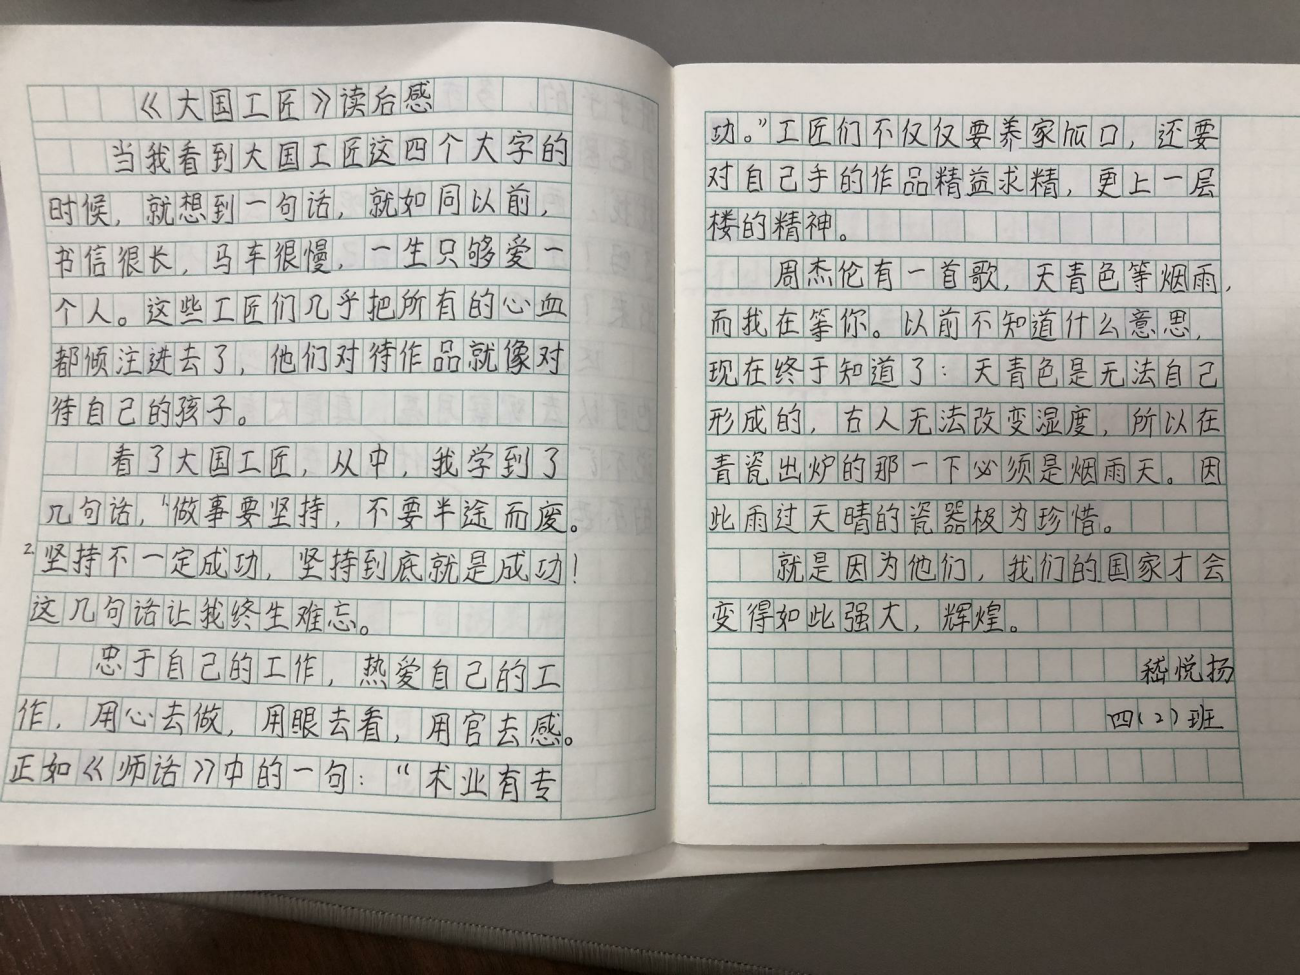 《大国工匠》读后感
当我看到大国工匠这四个大字的
时候，就想到一句话，就如同以前，
书信很长，马车很慢，一生只够爱一
个人。这些工匠们几乎把所有的心血
都倾注进去了，他们对待作品就像对
待自己的孩子。
看了大国工匠，从中，我学到了
几句话，“做事要坚持，不要半途而废。
2.坚持不一定成功，坚持到底就是成功！
这几句话让我终生难忘。
忠于自己的工作，热爱自己的工
作，用心去做，用眼去看，用官去感。
正如《师话》中的一句：“术业有专
功。”工匠们不仅仅要养家版口，还要
对自己手的作品精益求精，更上一层
楼的精神。
周杰伦有一首歌，天青色等烟雨，
而我在等你。以前不知道什么意思，
现在终于知道了：天青色是无法自己
形成的，古人无法改变湿度，所以在
青瓷出炉的那一下必须是烟雨天。因
此雨过天晴的瓷器极为珍惜。
就是因为他们，我们的国家才会
变得如此强大，辉煌。
嵇悦扬
四（2）班